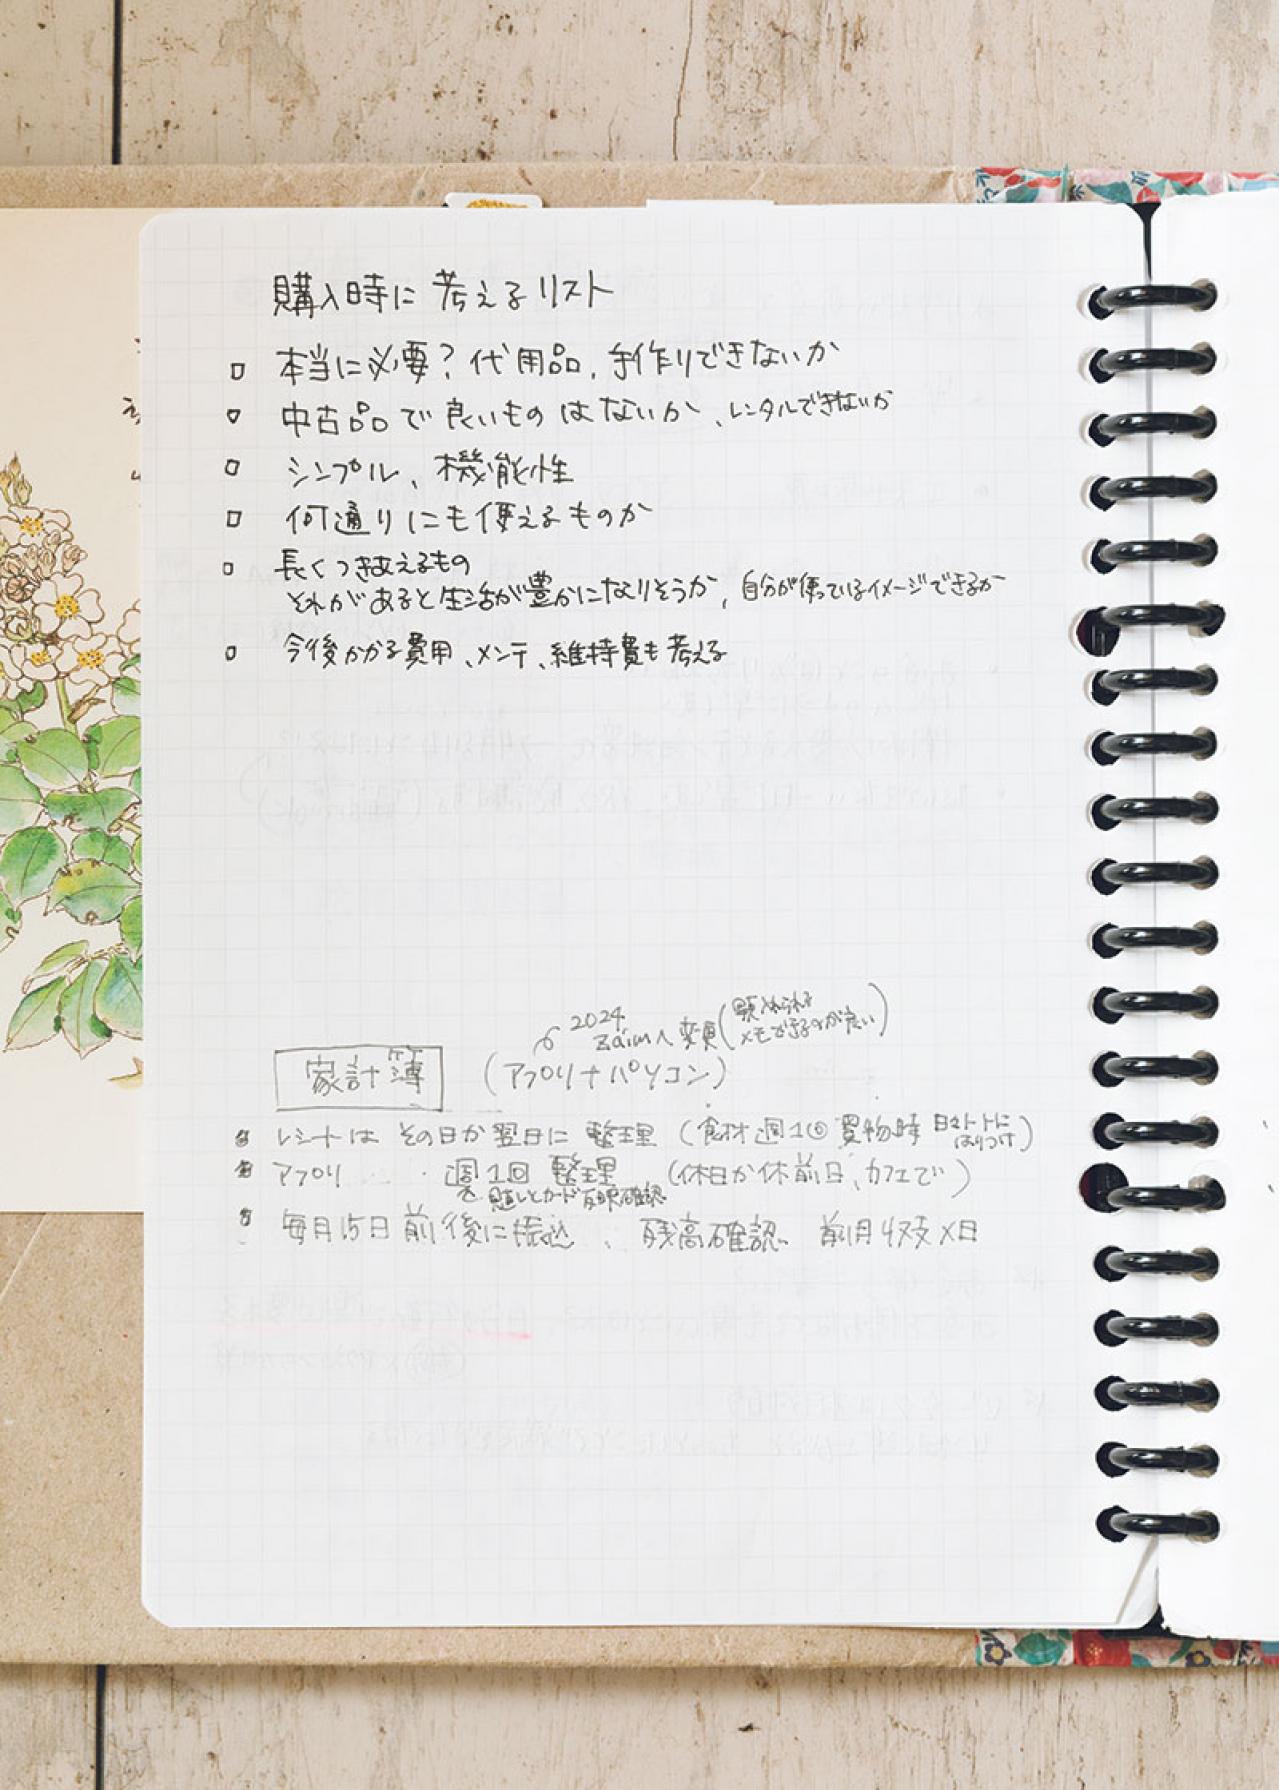 購入時に考えるリスト
本当に必要？代用品、手作りできないか
中古品で良いものはないか、レンタルできないか
シンプル、機能性
何通りにも使えるものか
長くつき合えるもの
それがあると生活が豊かになりそうか、自分が使っているイメージできるか
今後かかる費用、メンテ、維持費も考える
2024
Zaimへ変更(
メモできるのが良い)
家計簿 (アプリ+パソコン)
レシートはその日か翌日に整理 (食材週1の買物時
はりつけ)
アプリ 週1回整理 (休日か休前日、カフェで)
カード反映確認
毎月15日前後に振込、残高確認 前月収支〆日